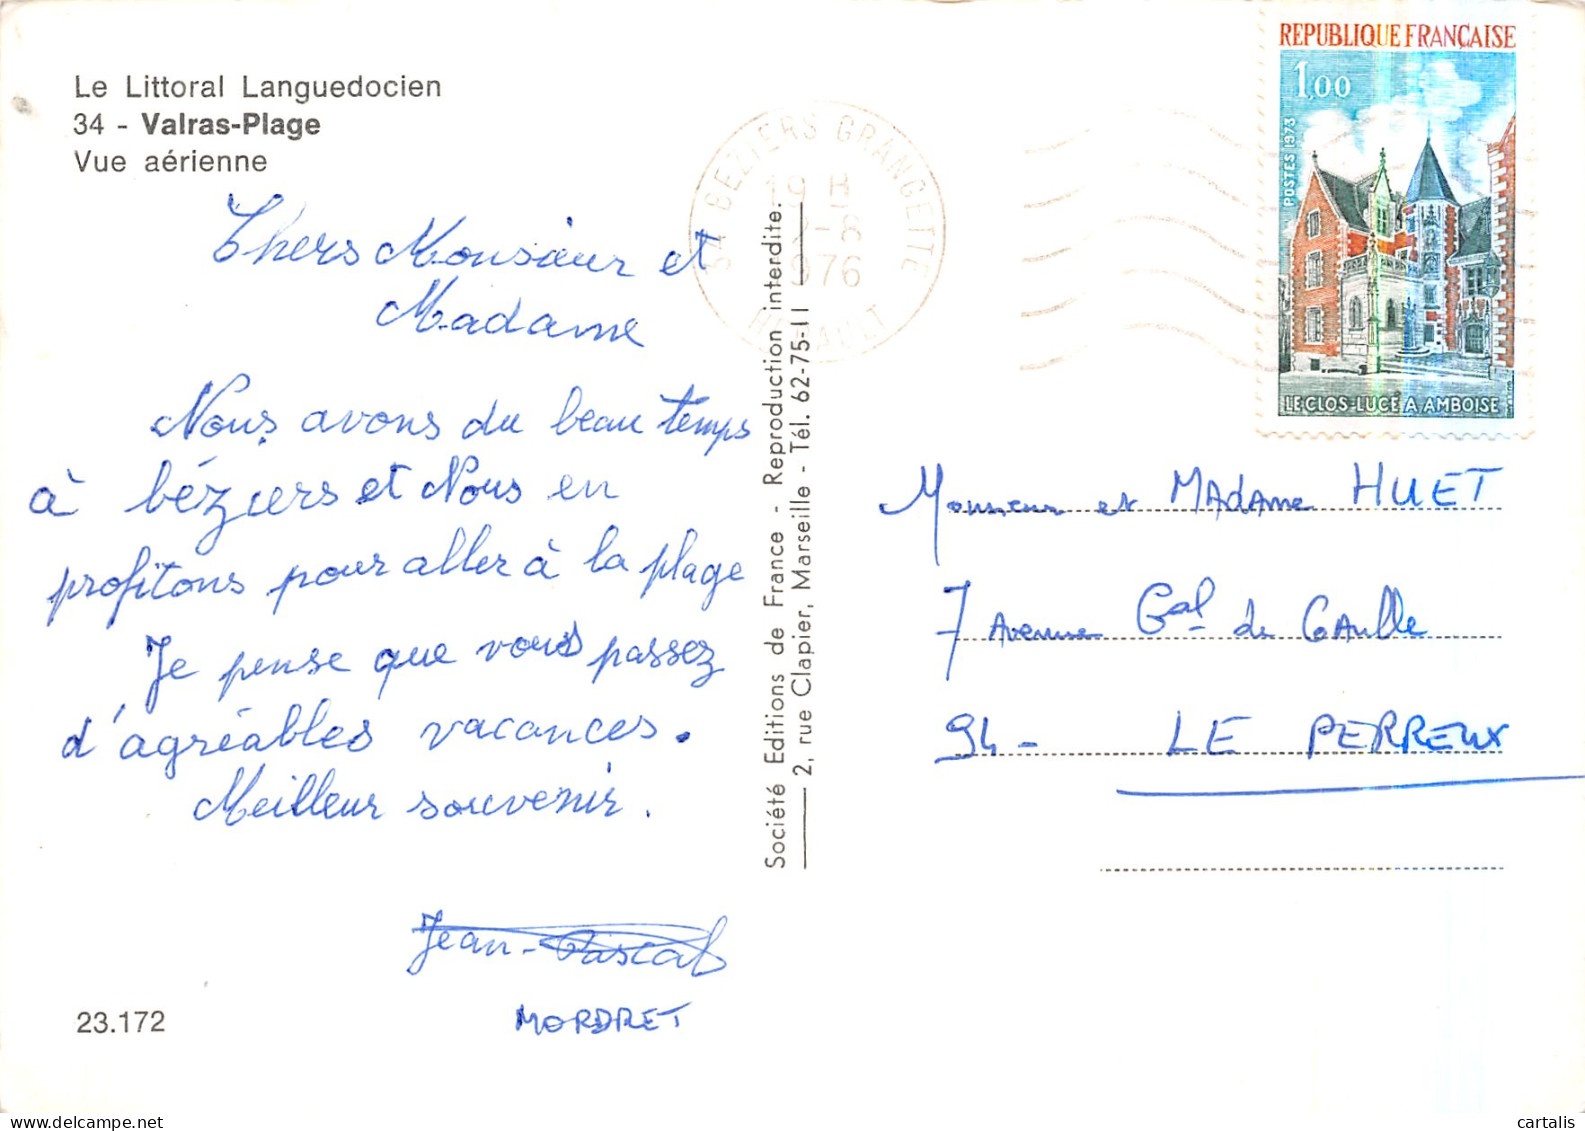 Le Littoral Languedocien
34 - Valras-Plage
Vue aérienne
Chers Monsieur et
Madame
Nous avons du beau temps
à béziers et Nous en
profitons pour aller à la plage
Je pense que vous passez
d'agréables vacances.
Meilleur souvenir.
Jean-Pascal
MORDRET
23.172
Société Editions de France - Reproduction interdite.
2, rue Clapier, Marseille - Tél. 62-75-11
34 BEZIERS GRANGETTE
19 H
-8
1976
HERAULT
REPUBLIQUE FRANÇAISE
1,00
POSTES 1973
LE CLOS-LUCÉ A AMBOISE
Monsieur et MAdAme HUET
7 Avenue Gal de GAulle
94 - LE PERREUX
cartalis